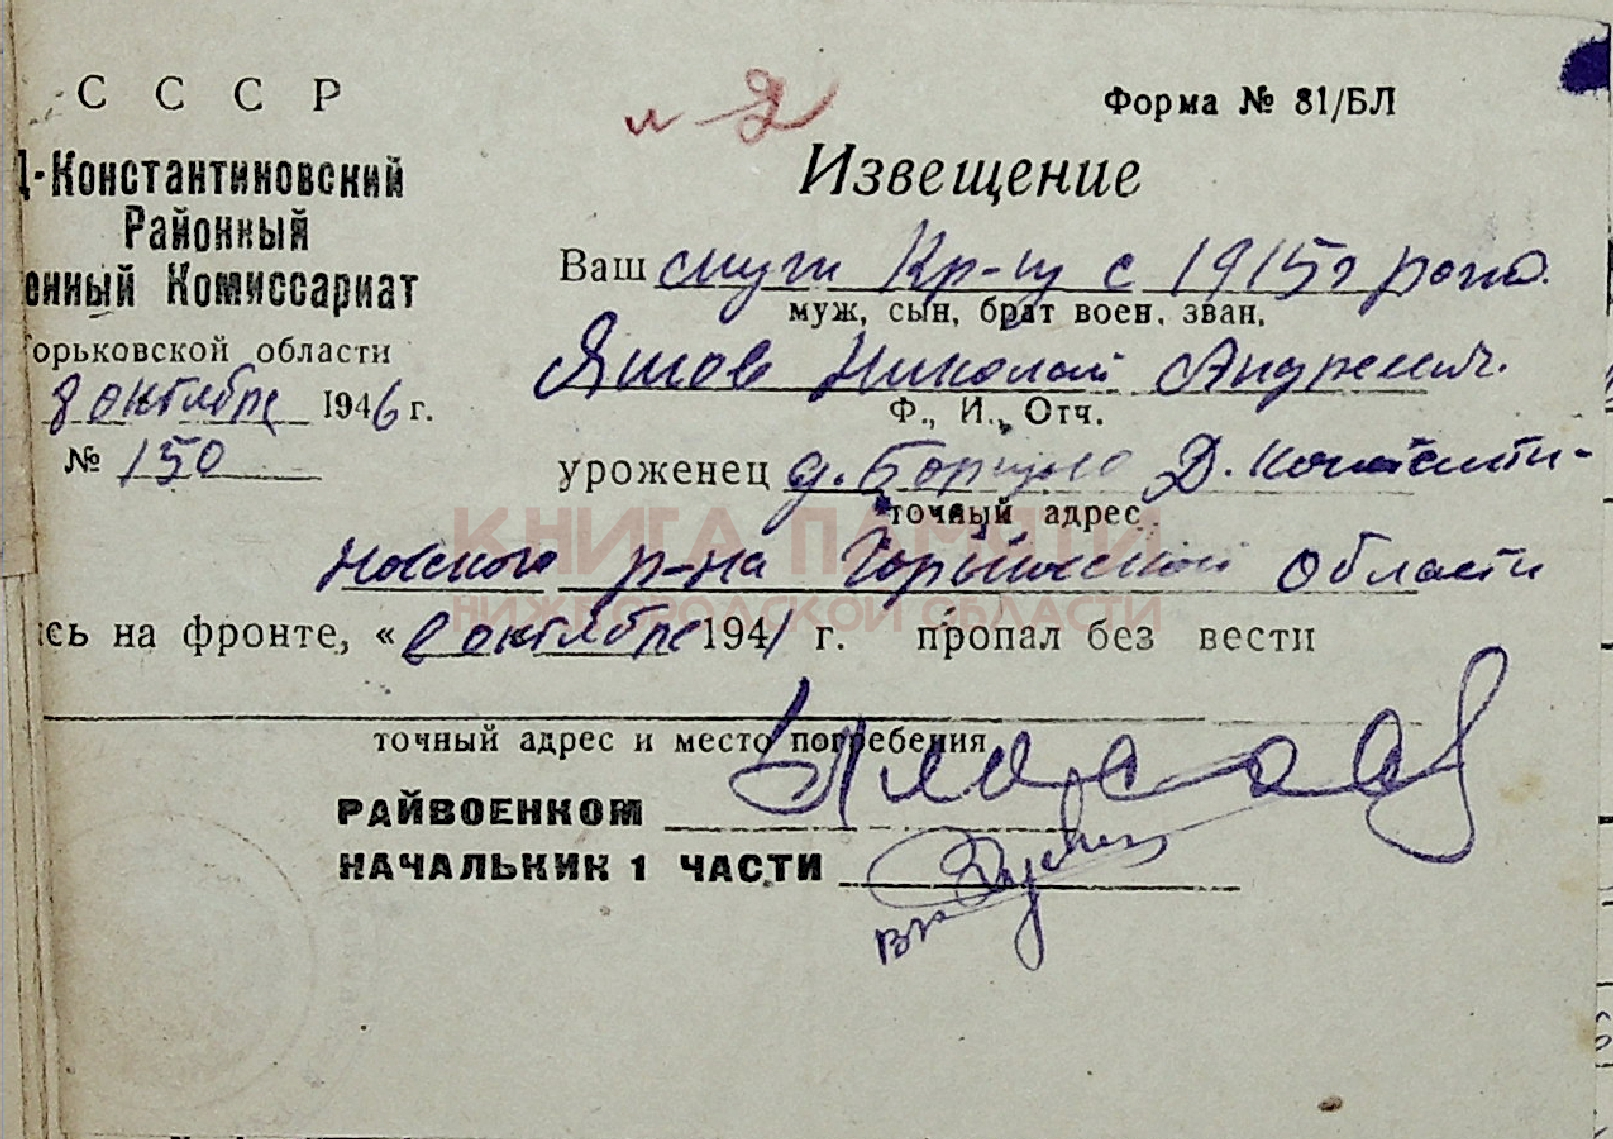 С С С Р
Д-Константиновский
Районный
енный Комиссариат
Горьковской области
8 октября 1946 г.
№ 150
Форма № 81/БЛ
Извещение
Ваш муж Кр-ц с 1915 г рожд.
муж, сын, брат воен. зван.
Яшов Николай Андреевич.
Ф., И., Отч.
уроженец д. Борцово Д. Константи-
точный адрес
новского р-на Горьковской области
ись на фронте, « в октябре 1941 г. пропал без вести
точный адрес и место погребения
РАЙВОЕНКОМ
НАЧАЛЬНИК 1 ЧАСТИ
КНИГА ПАМЯТИ
НИЖЕГОРОДСКОЙ ОБЛАСТИ